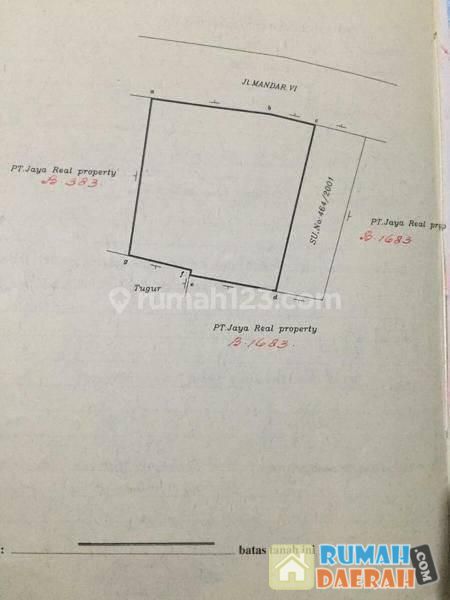 JL.MANDAR.VI
a
b
c
PT.Jaya Real property
B.383
SU.No.464/2001
PT.Jaya Real prop
B.1683
g
f
e
d
Tugur
rumah123.com
PT.Jaya Real property
B.1683.
: batas tanah ini
RUMAH
DAERAH.COM